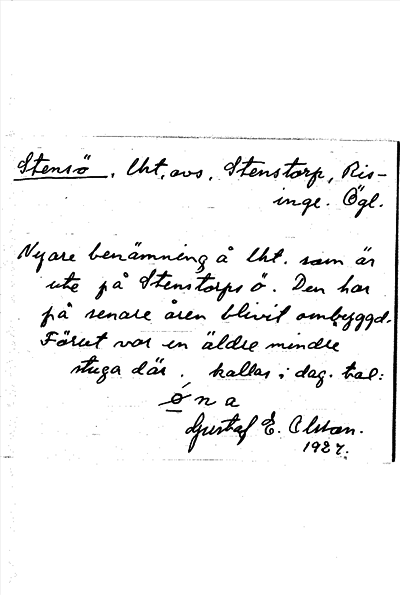 Stensö, lht. avs. Stenstorp, Ris-
inge. Ögl.
Nyare benämning å lht. som är
ute på Stenstorps ö. Den har
på senare åren blivit ombyggd.
Förut var en äldre mindre
stuga där. kallas i dag. tal:
ǿna
Gustaf E. Olsson.
1927.